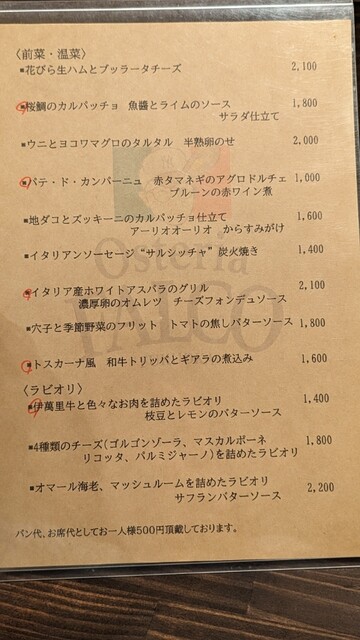 〈前菜・温菜〉
▪花びら生ハムとブッラータチーズ 2,100
▪桜鯛のカルパッチョ 魚醬とライムのソース 1,800
サラダ仕立て
▪ウニとヨコワマグロのタルタル 半熟卵のせ 2,000
▪パテ・ド・カンパーニュ 赤タマネギのアグロドルチェ 1,000
プルーンの赤ワイン煮
▪地ダコとズッキーニのカルパッチョ仕立て 1,600
アーリオオーリオ からすみがけ
▪イタリアンソーセージ“サルシッチャ”炭火焼き 1,400
Osteria
▪イタリア産ホワイトアスパラのグリル 2,100
濃厚卵のオムレツ チーズフォンデュソース
▪穴子と季節野菜のフリット トマトの焦しバターソース 1,800
▪トスカーナ風 和牛トリッパとギアラの煮込み 1,600
〈ラビオリ〉
▪伊萬里牛と色々なお肉を詰めたラビオリ 1,400
枝豆とレモンのバターソース
▪4種類のチーズ(ゴルゴンゾーラ、マスカルポーネ 1,800
リコッタ、パルミジャーノ)を詰めたラビオリ
▪オマール海老、マッシュルームを詰めたラビオリ 2,200
サフランバターソース
パン代、お席代としてお一人様500円頂戴しております。